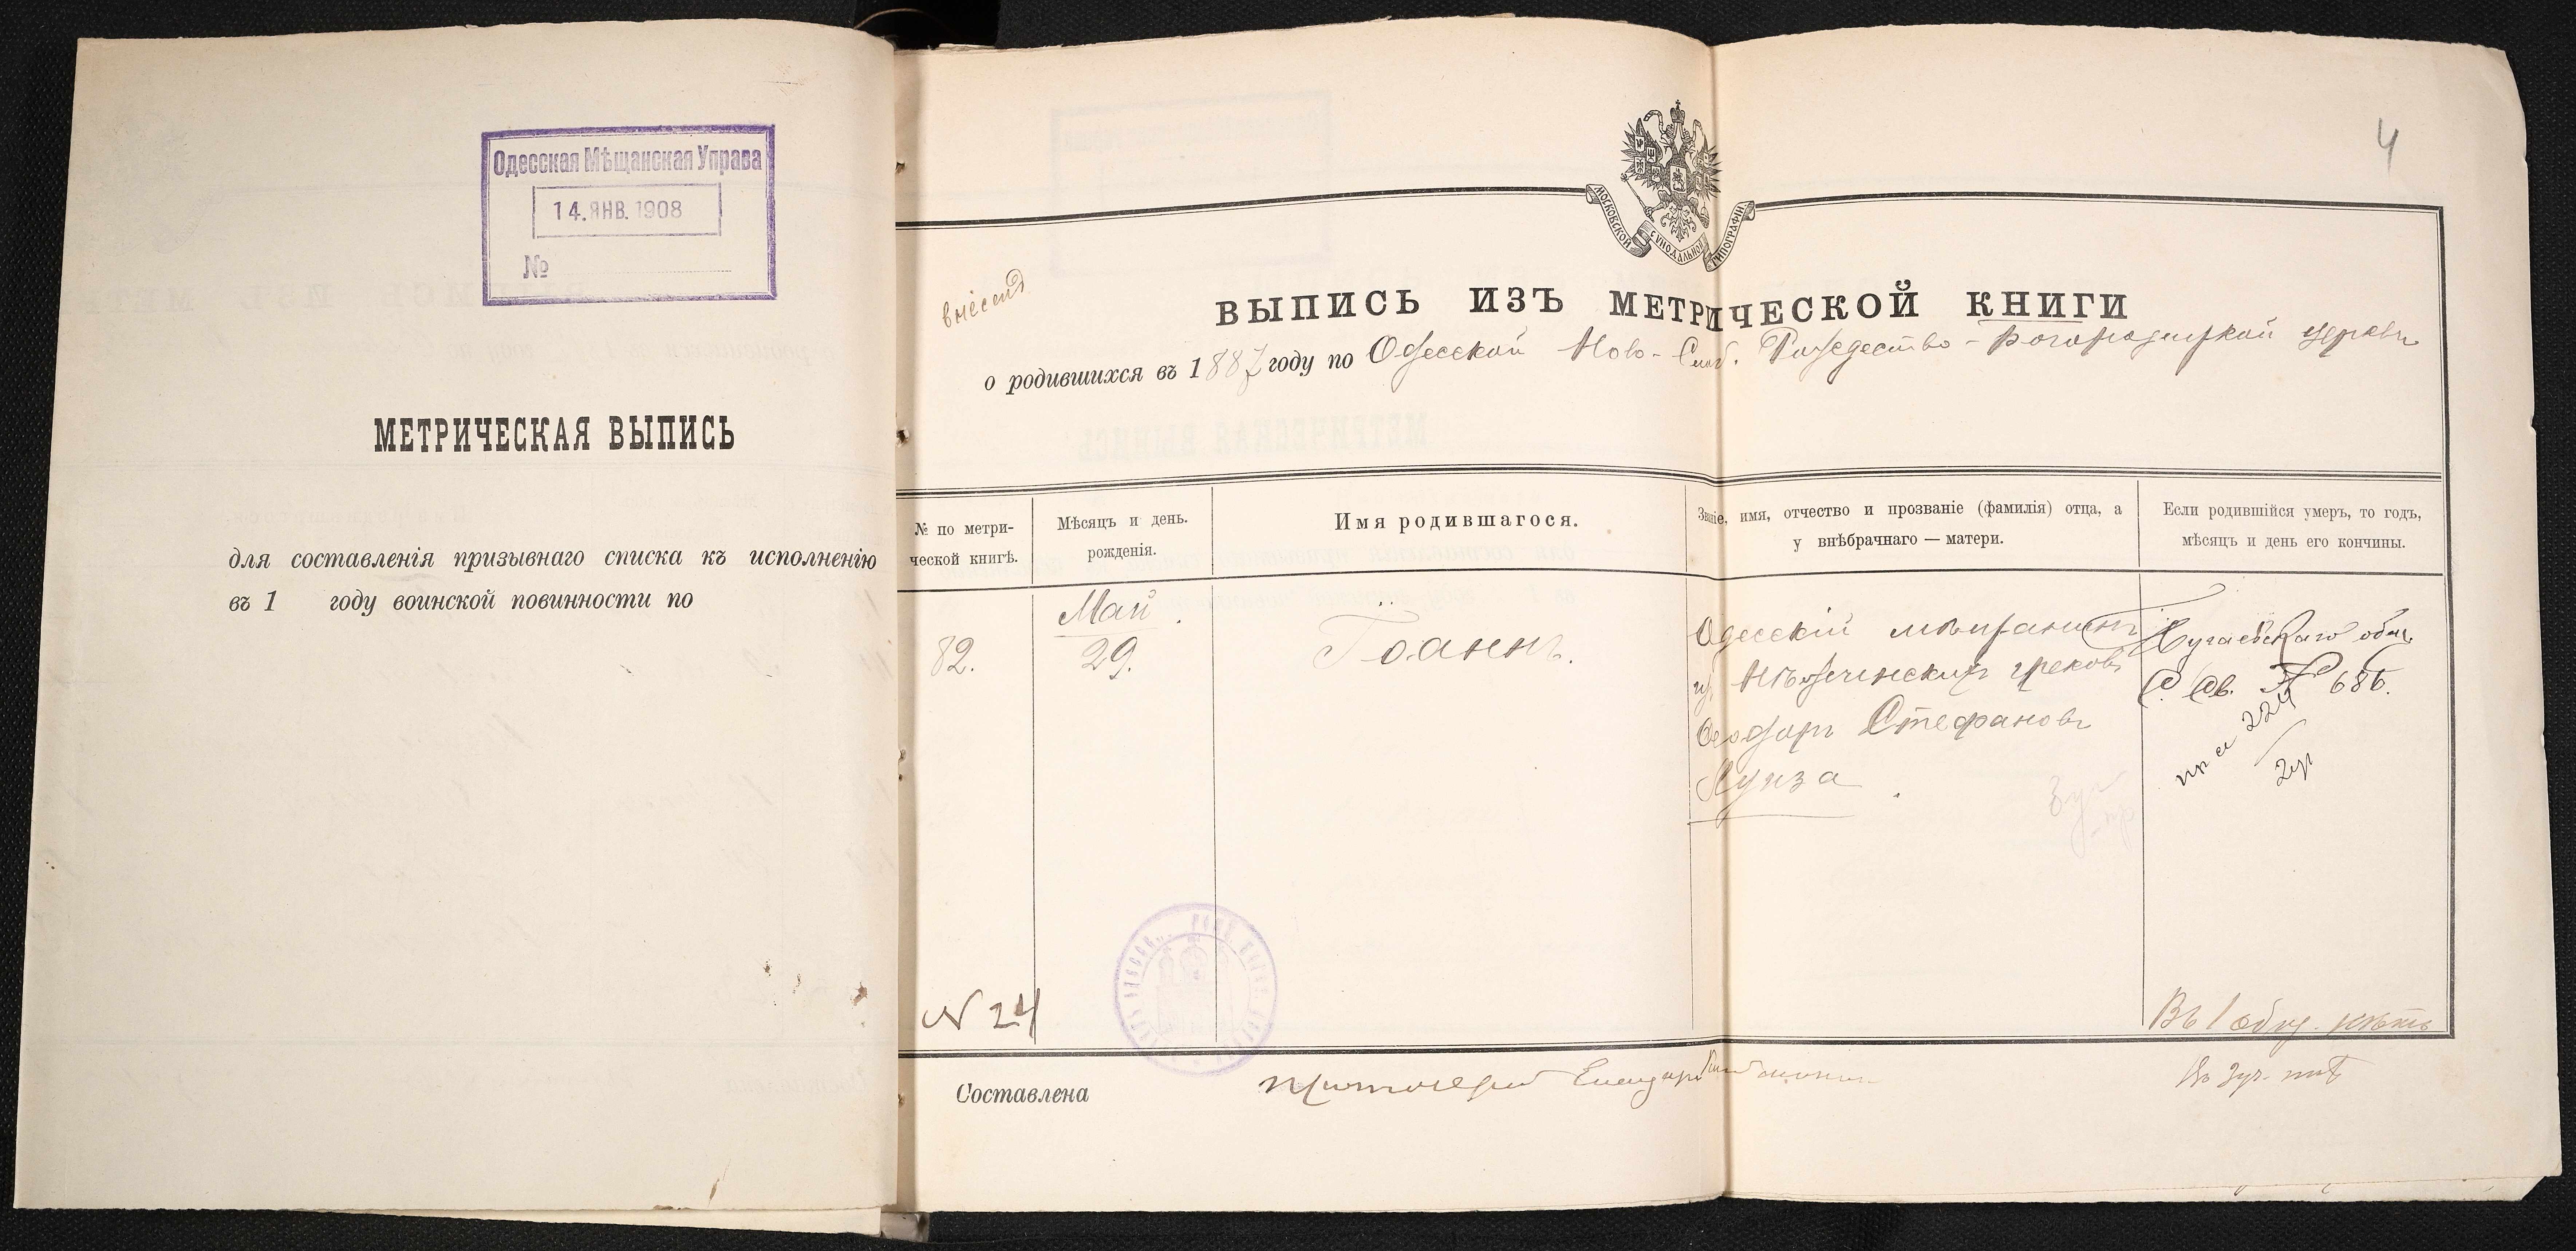 Одесская Мѣщанская Управа
14. ЯНВ. 1908
№
МЕТРИЧЕСКАЯ ВЫПИСЬ
для составленія призывнаго списка къ исполненію
въ 1 году воинской повинности по
4
МОСКОВСКОЙ СѴНОДАЛЬНОЙ ТИПОГРАФІИ
внесенъ
ВЫПИСЬ ИЗЪ МЕТРИЧЕСКОЙ КНИГИ
о родившихся въ 1887 году по Одесской Ново-Слоб. Рождество-Богородицкой церкви
№ по метри-
ческой книгѣ.
Мѣсяцъ и день.
рожденія.
Имя родившагося.
Званіе, имя, отчество и прозваніе (фамилія) отца, а
у внѣбрачнаго — матери.
Если родившійся умеръ, то годъ,
мѣсяцъ и день его кончины.
82.
Май.
29.
Іоаннъ.
Одесскій мѣщанинъ
изъ Нѣжинскихъ грековъ
Ѳеодоръ Стефановъ
Кунза.
686.
224
2 уч
3 уч
N 24
Въ 1
Составлена
Протоіерей